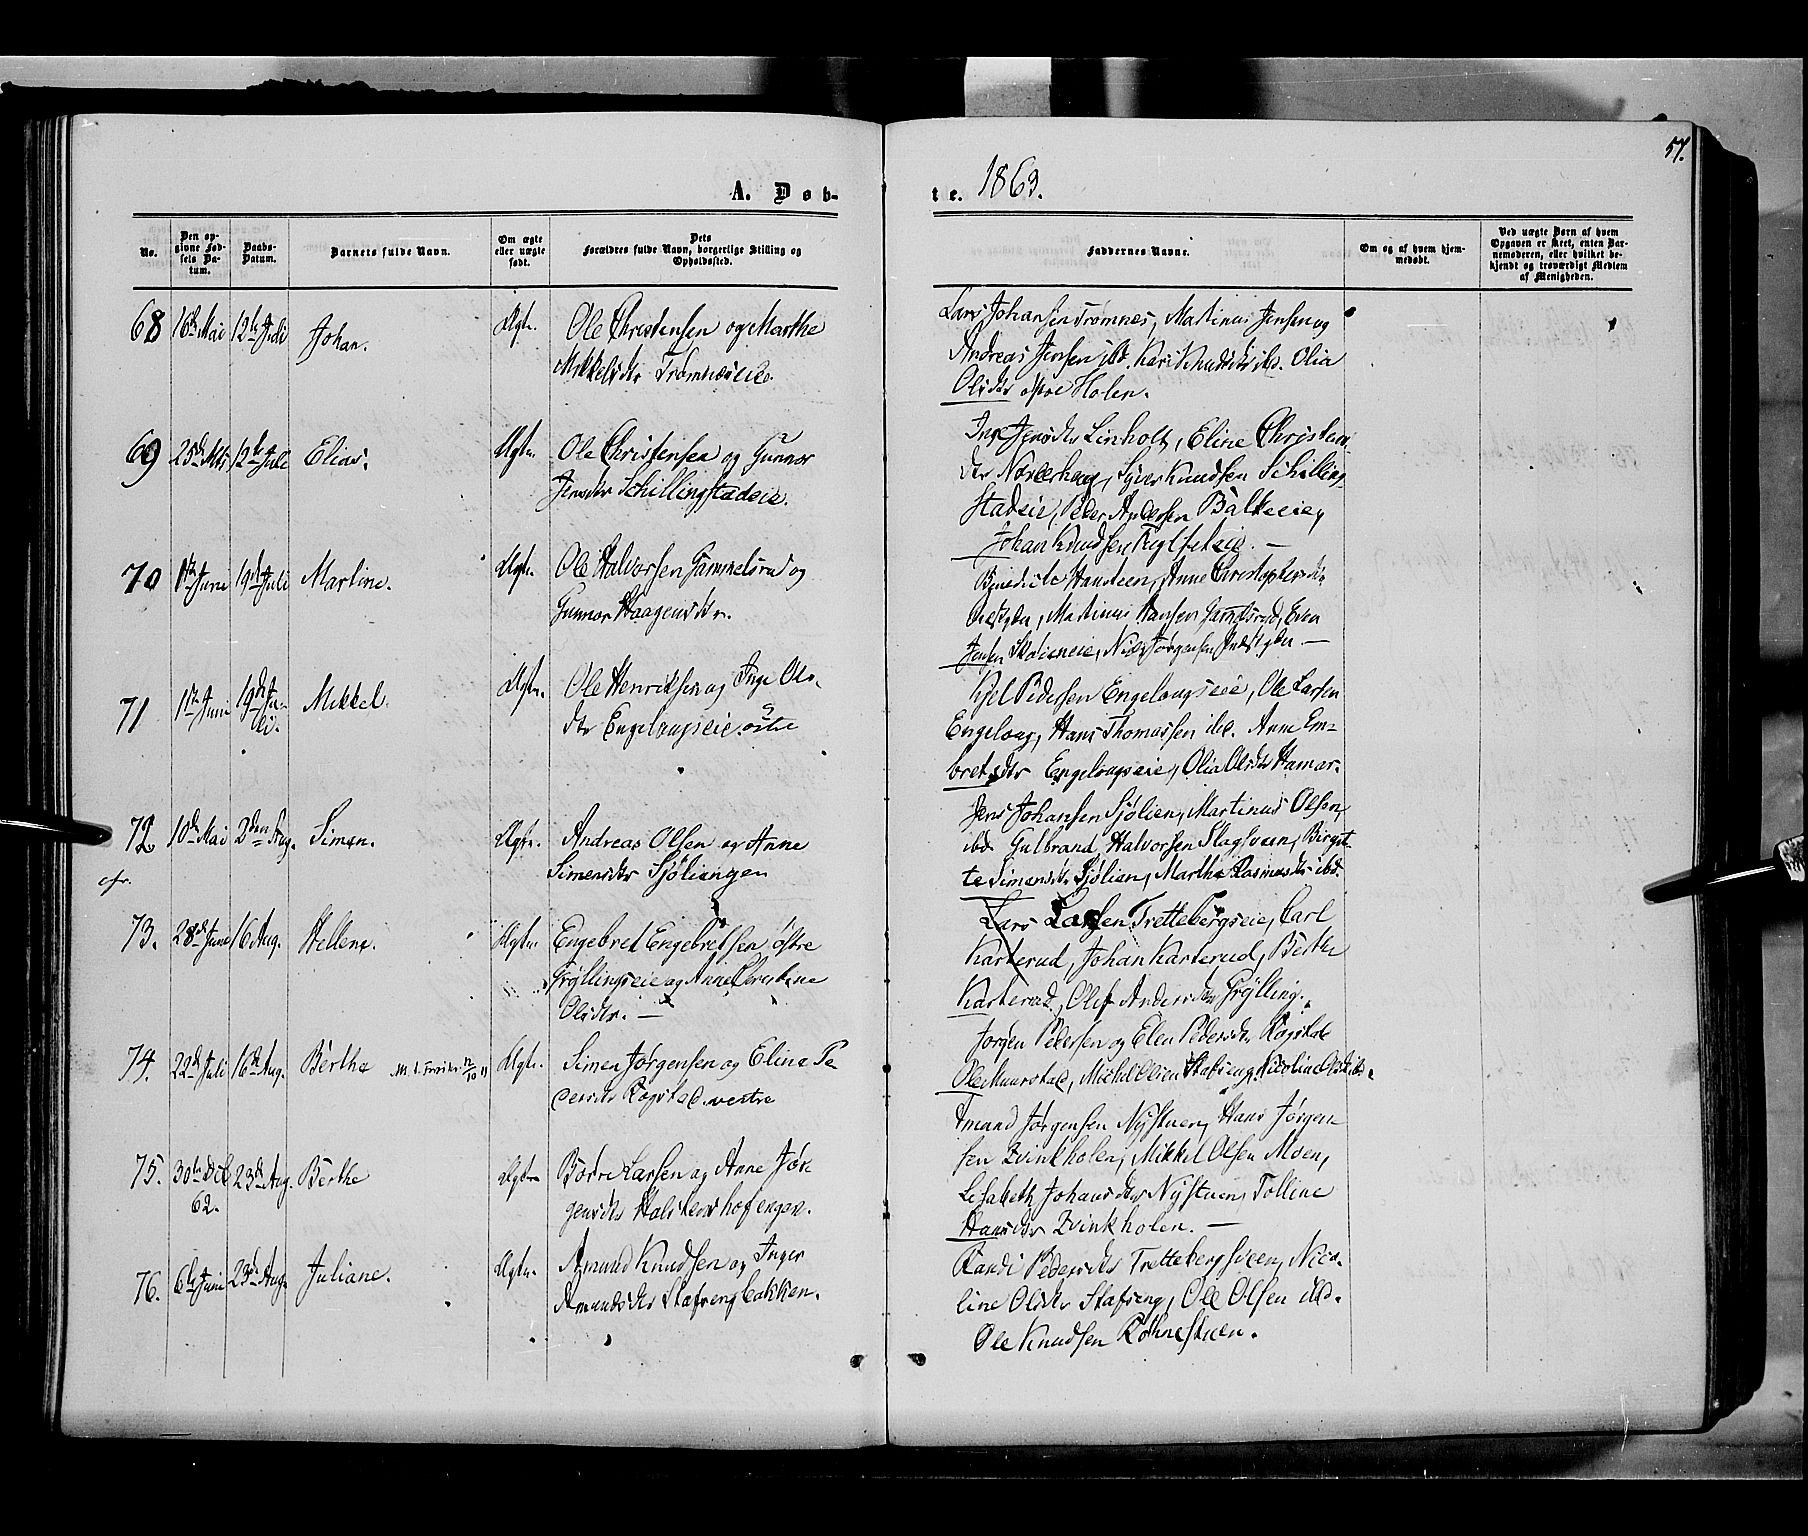 57.
A. Døb-
te. 1863.
No.
Den op-
givne Fød-
sels Da-
tum.
Daabs-
Datum.
Barnets fulde Navn.
Om ægte
eller uægte
født.
Dets
Forældres fulde Navn, borgerlige Stilling og
Opholdssted.
Faddernes Navne.
Om og af hvem hjem-
medøbt.
Ved uægte Børn af hvem
Opgaven er skeet, enten Bar-
nemoderen, eller hvilket be-
kjendt og troværdigt Medlem
af Menigheden.
68 16de Mai 12te Juli Johan. Ægte.
Ole Christensen og Marthe
Mikkelsdtr Trømnæseie.
Lars Johansen Trømnes, Martinus Jensen og
Andreas Jensen ibd. Kari Knudsdtr ibd. Olia
Olsdtr Holen.
69 25de Mai 12te Juli Elias. Ægte
Ole Christensen og Gunnor
Jensdtr Schillingstadeie.
Inge Jensdtr Linholt, Eline Christens
dtr Norderhaug, Syver Knudsen Schilling
stadeie, Peder Andersen Balkeeie,
Johan Knudsen
70 1ste Juni 19de Juli Martine. Ægte.
Ole Halvorsen Gammelsrud og
Gunnor Haagensdtr.
Benedicte Hansteen, Anne Christophersdtr
Martinus Hansen Even
Jensen Niels Jørgensen
71 1ste Juni 19de Ju-
li. Mikkel. Ægte.
Ole Henriksen og Inge Ols-
dtr Engelaugseie østre
Kjel Pedersen Engelaugseie, Ole Larsen
Engelaug, Hans Thomassen ibd. Anne Em-
bretsdtr Engelaugseie, Olia Olsdtr Hamar.
72. 10de Mai 2den Aug. Simen. Ægte.
cfr.
Andreas Olsen og Anne
Simensdtr Sjøliengen
Jens Johansen Sjølien, Martinus Olsen,
ibd. Gulbrand Halvorsen Slagsveen, Birgit-
te Simensdtr Sjølien, Marthe Rasmusdtr ibd.
73. 28de Juni 16 Aug. Hellene. Ægte
Engebret Engebretsen østre
Frøllingseie og Anne Christine
Olsdtr. —
Lars Larsen Trettebergseie, Carl
Karterud, Johan Karterud, Berthe
Karterud, Andersdtr Frølling.
74. 22de Juli 16de Aug. Berthe Ægte.
Simen Jørgensen og Eline Pe
dersdtr Rogstad vestre
Jørgen Pedersen og Elen Pedersdtr Rogstad
Ole Michel Olsen Stafseng, Nicoline Olsdtr ibd.
75. 30te Dcb
62. 23de Aug. Berthe Ægte
Børre Larsen og Anne Jør-
gensdtr Halstenshofengen.
Amund Jørgensen Nystuen, Hans Jørgen-
sen Kvinkholen, Mikkel Olsen Moen,
Lisabeth Johansdtr Nystuen, Tolline
Hansdtr Kvinkholen. —
76. 6te Juni 23de Aug. Juliane. Ægte.
Amund Knudsen og Inger
Amundsdtr Stafsengbakken.
Randi Pedersdtr Trettebergsveen, Nico-
line Olsdtr Stafseng, Ole Olsen ibd.
Ole Knudsen Røhnestuen.